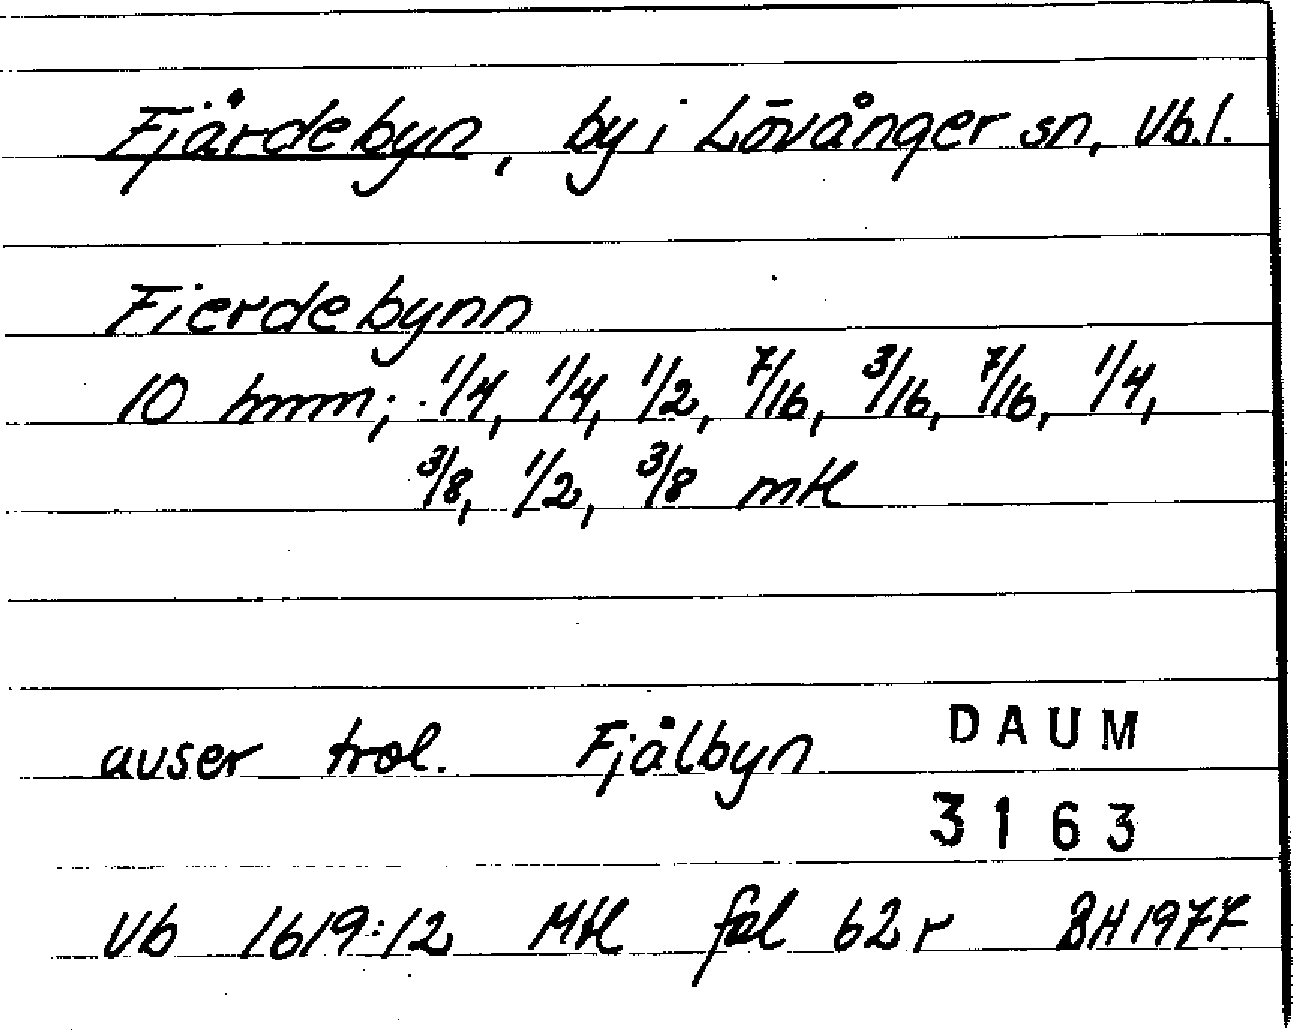 Fjärdebyn, by i Lövånger sn, Vb.l.
Fierdebynn
10 hmm; 1/4, 1/4, 1/2, 7/16, 3/16, 7/16, 1/4,
3/8, 1/2, 3/8 mtl
avser trol. Fjälbyn
DAUM
3163
Vb 1619:12 Mtl fol 62 r BH 1977